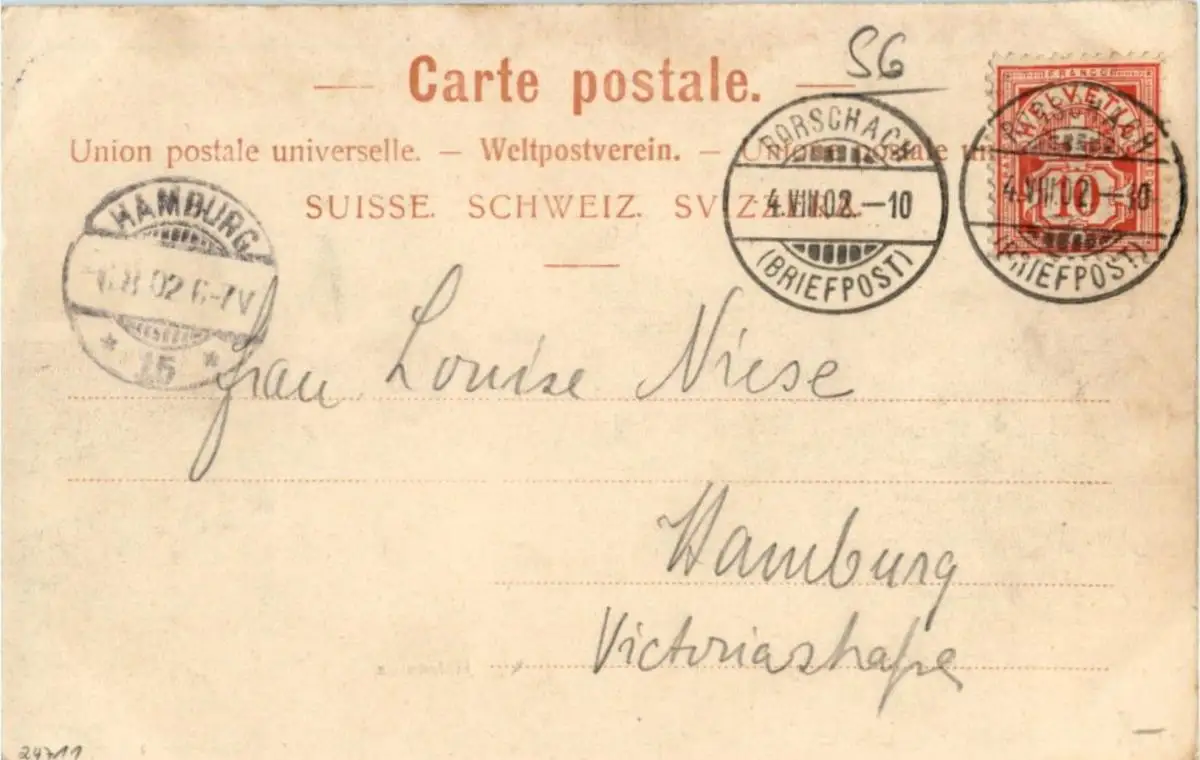 S6
Carte postale.
Union postale universelle. — Weltpostverein. — Unione postale
SUISSE. SCHWEIZ. SVIZZERA.
FRANCO
HELVETIA
10
RORSCHACH
4.VIII.02.–10
(BRIEFPOST)
RORSCHACH
4.VIII.02.–10
(BRIEFPOST)
HAMBURG
6.8.02 6-7V
* 15 *
Frau Louise Niese
Hamburg
Victoriastraße
24711